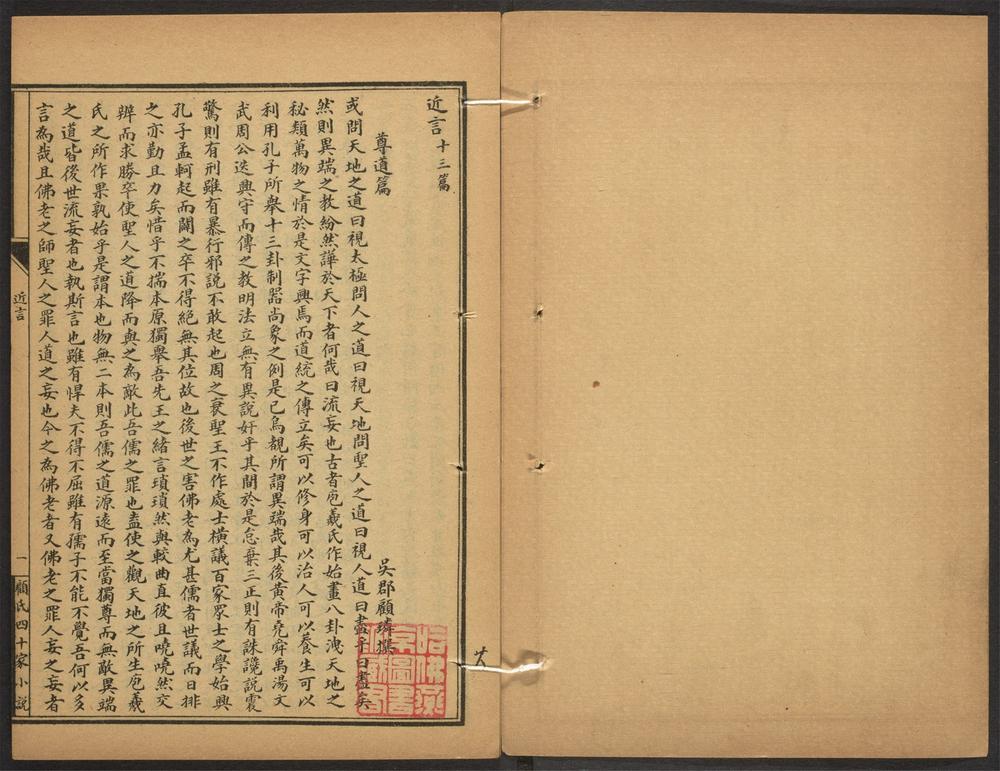 近言十三篇
尊道篇
吳郡顧璘撰
或問天地之道曰視太極問人之道曰視天地問聖人之道曰視人道曰盡乎曰盡矣
然則異端之教紛然譁於天下者何哉曰流妄也古者庖羲氏作始畫八卦洩天地之
秘類萬物之情於是文字興焉而道統之傳立矣可以修身可以治人可以養生可以
利用孔子所舉十三卦制器尚象之例是已烏覩所謂異端哉其後黃帝堯舜禹湯文
武周公迭興守而傳之教明法立無有異說奸乎其間於是怠棄三正則有誅讒說震
驚則有刑雖有暴行邪說不敢起也周之衰聖王不作處士橫議百家眾士之學始興
孔子孟軻起而闢之卒不得絕無其位故也後世之害佛老為尤甚儒者世議而日排
之亦勤且力矣惜乎不揣本原獨舉吾先王之緒言瑣瑣然與較曲直彼且嘵嘵然交
辨而求勝卒使聖人之道降而與之為敵此吾儒之罪也盍使之觀天地之所生庖羲
氏之所作果孰始乎是謂本也物無二本則吾儒之道源遠而至當獨尊而無敵異端
之道皆後世流妄者也執斯言也雖有悍夫不得不屈雖有孺子不能不覺吾何以多
言為哉且佛老之師聖人之罪人道之妄也今之為佛老者又佛老之罪人妄之妄者
近言
一
顧氏四十家小說